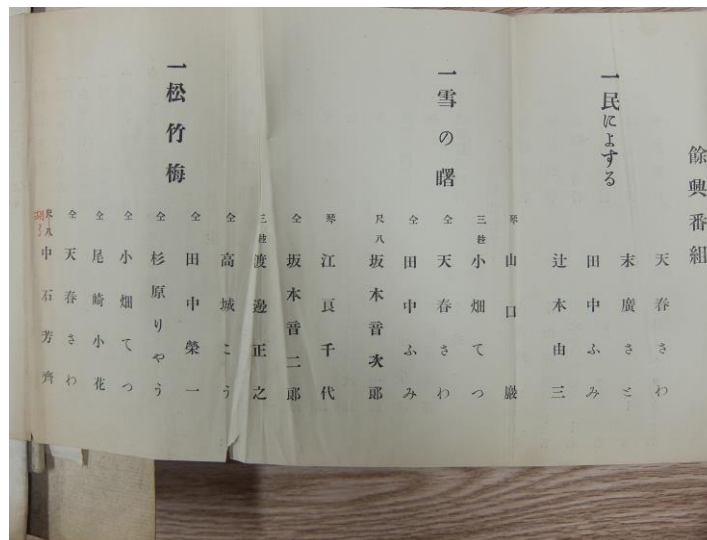 餘興番組
一民によする
天春さわ
末廣さと
田中ふみ
辻本由三
一雪の曙
琴 山口巖
三絃 小畑てつ
仝 天春さわ
仝 田中ふみ
尺八 坂本音次郎
一松竹梅
琴 江良千代
仝 坂本音二郎
三絃 渡邉正之
仝 高城こう
仝 田中榮一
仝 杉原りやう
仝 小畑てつ
仝 尾崎小花
仝 天春さわ
尺八 中石芳齊